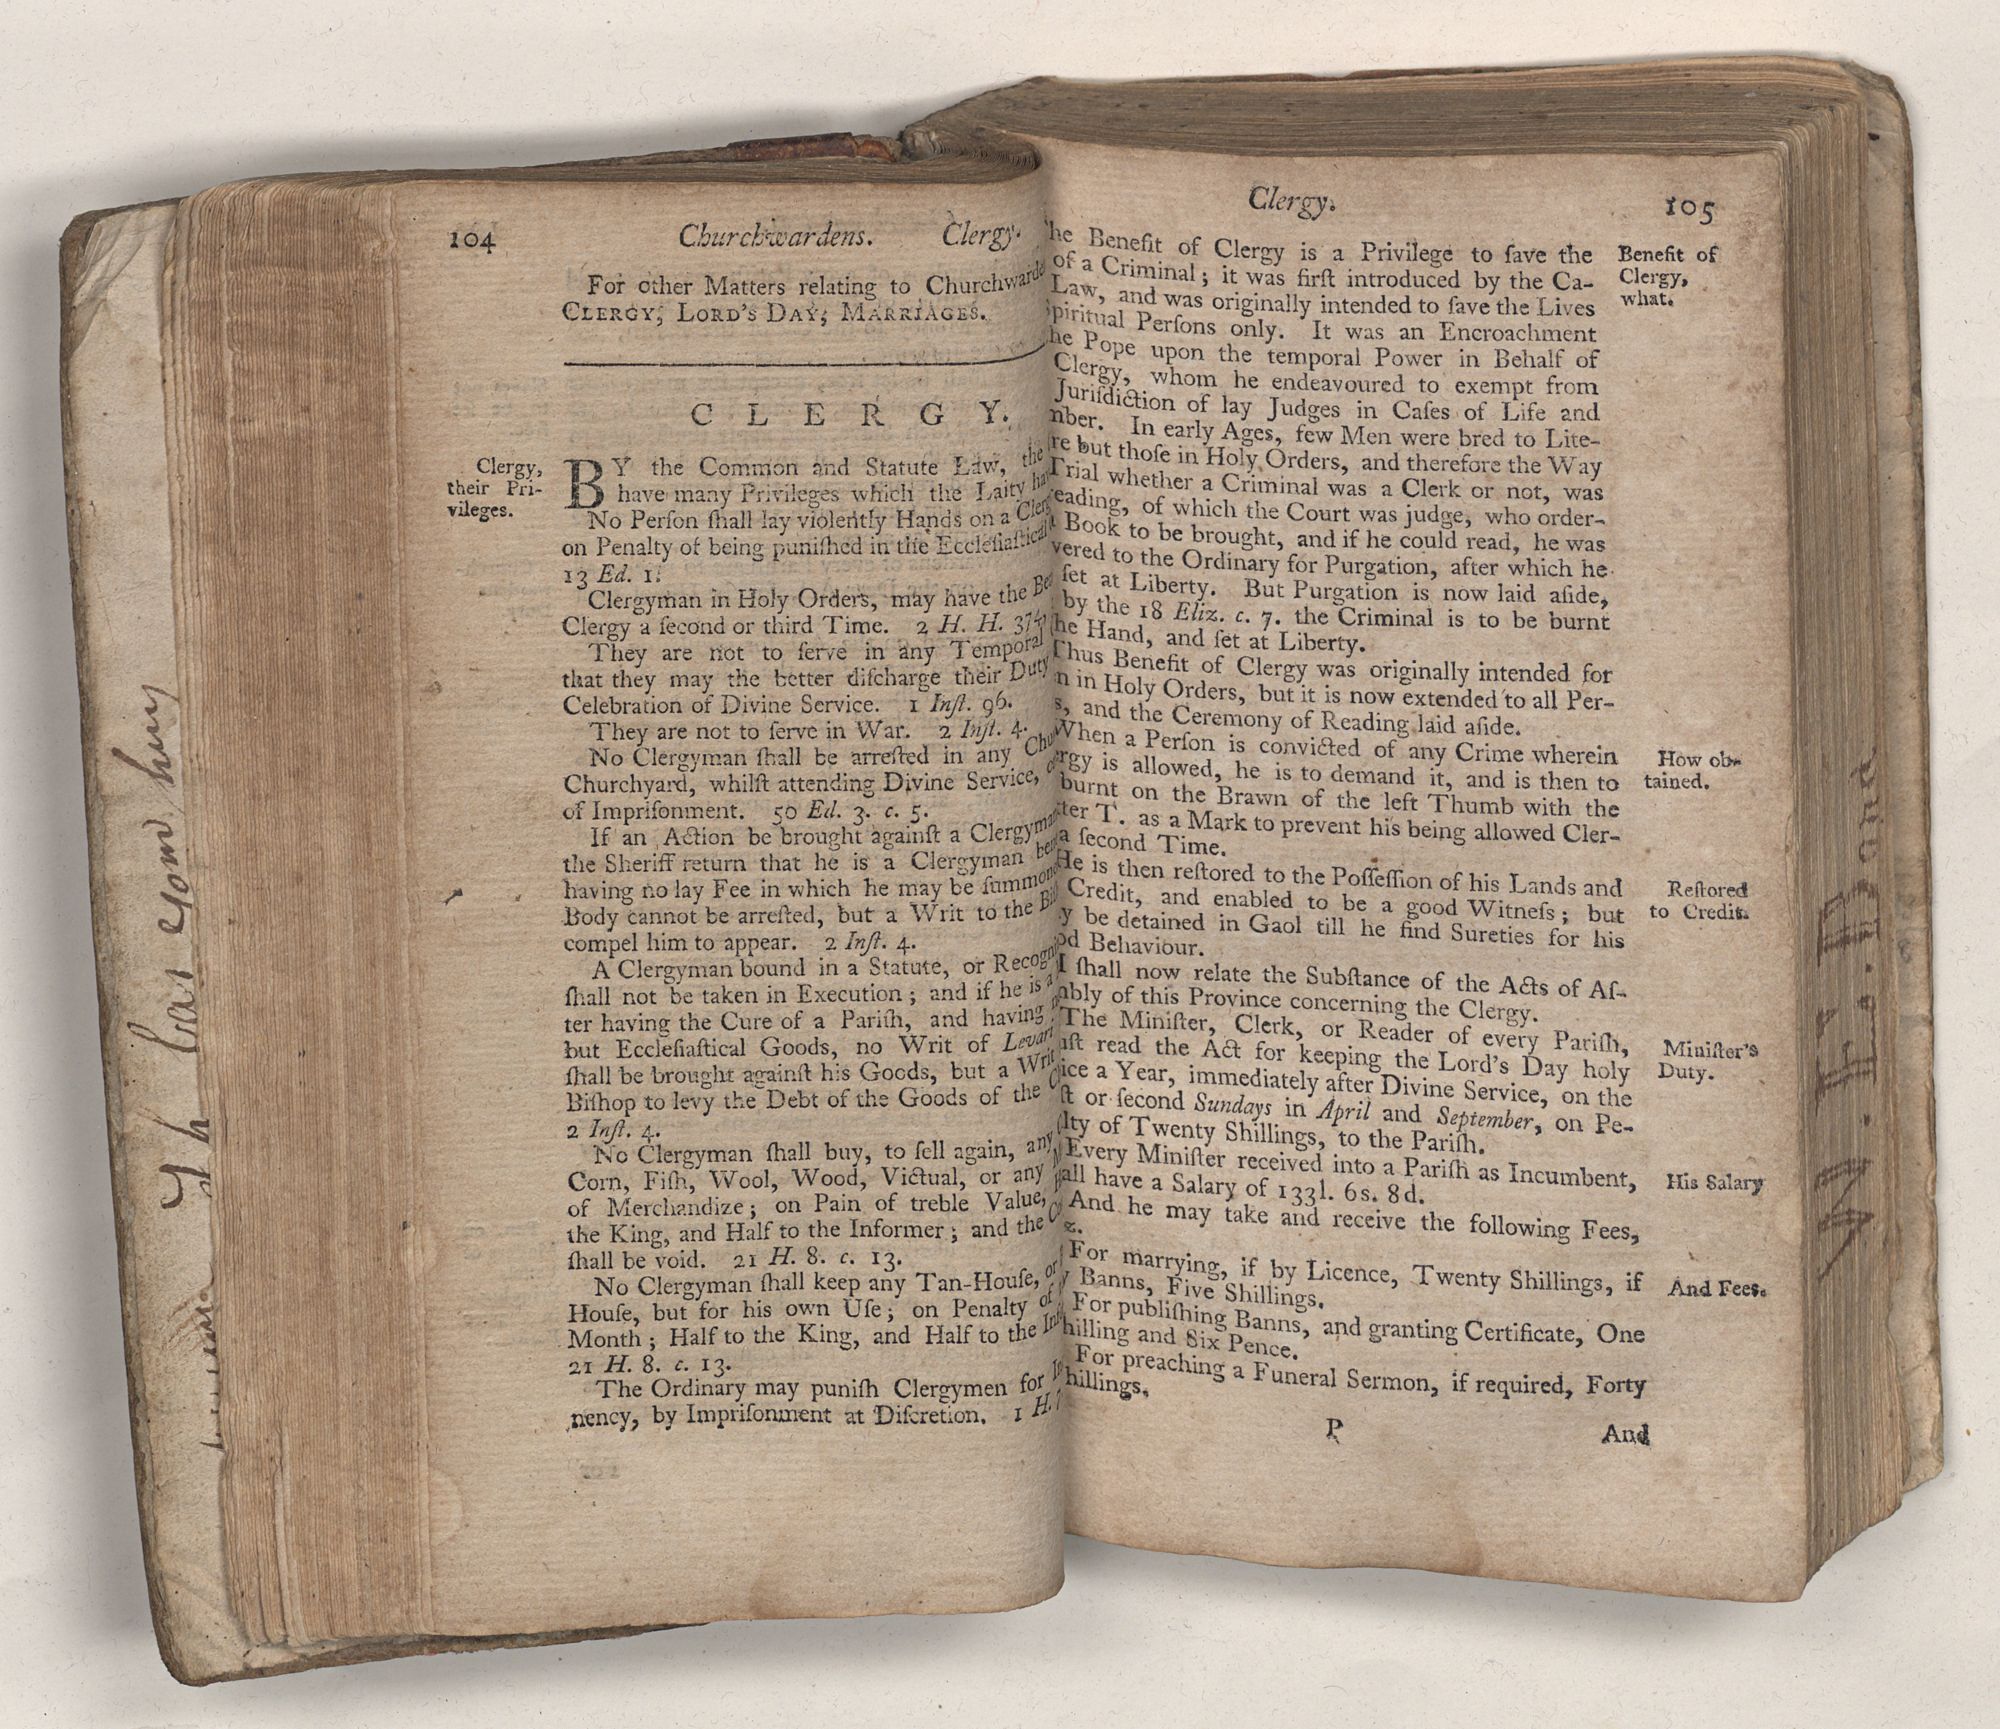 104 Churchwardens. Clergy.
For other Matters relating to Churchwarde
CLERGY, LORD'S DAY, MARRIAGES.
CLERGY.
Clergy,
their Pri-
vileges.
BY the Common and Statute Law, the
have many Privileges which the Laity ha
No Perſon ſhall lay violently Hands on a Cler
on Penalty of being puniſhed in the Eccleſiaſtical
13 Ed. 1.
Clergyman in Holy Orders, may have the Be
Clergy a ſecond or third Time. 2 H. H. 374
They are not to ſerve in any Temporal
that they may the better diſcharge their Duty
Celebration of Divine Service. 1 Inſt. 96.
They are not to ſerve in War. 2 Inſt. 4.
No Clergyman ſhall be arreſted in any Chu
Churchyard, whilſt attending Divine Service,
of Impriſonment. 50 Ed. 3. c. 5.
If an Action be brought againſt a Clergyman
the Sheriff return that he is a Clergyman bene
having no lay Fee in which he may be ſummone
Body cannot be arreſted, but a Writ to the Biſ
compel him to appear. 2 Inſt. 4.
A Clergyman bound in a Statute, or Recogni
ſhall not be taken in Execution; and if he is a
ter having the Cure of a Pariſh, and having
but Eccleſiaſtical Goods, no Writ of Levari
ſhall be brought againſt his Goods, but a Writ
Biſhop to levy the Debt of the Goods of the
2 Inſt. 4.
No Clergyman ſhall buy, to ſell again, any
Corn, Fiſh, Wool, Wood, Victual, or any
of Merchandize; on Pain of treble Value,
the King, and Half to the Informer; and the Co
ſhall be void. 21 H. 8. c. 13.
No Clergyman ſhall keep any Tan-Houſe, or
Houſe, but for his own Uſe; on Penalty of
Month; Half to the King, and Half to the Inf
21 H. 8. c. 13.
The Ordinary may puniſh Clergymen for In
nency, by Impriſonment at Diſcretion. 1 H. 7
Clergy. 105
he Benefit of Clergy is a Privilege to ſave the
of a Criminal; it was firſt introduced by the Ca-
Law, and was originally intended to ſave the Lives
piritual Perſons only. It was an Encroachment
he Pope upon the temporal Power in Behalf of
Clergy, whom he endeavoured to exempt from
Juriſdiction of lay Judges in Caſes of Life and
mber. In early Ages, few Men were bred to Lite-
re but thoſe in Holy Orders, and therefore the Way
Trial whether a Criminal was a Clerk or not, was
eading, of which the Court was judge, who order-
Book to be brought, and if he could read, he was
vered to the Ordinary for Purgation, after which he
ſet at Liberty. But Purgation is now laid aſide,
by the 18 Eliz. c. 7. the Criminal is to be burnt
he Hand, and ſet at Liberty.
Thus Benefit of Clergy was originally intended for
n in Holy Orders, but it is now extended to all Per-
s, and the Ceremony of Reading laid aſide.
When a Perſon is convicted of any Crime wherein
rgy is allowed, he is to demand it, and is then to
burnt on the Brawn of the left Thumb with the
ter T. as a Mark to prevent his being allowed Cler-
a ſecond Time.
He is then reſtored to the Poſſeſſion of his Lands and
Credit, and enabled to be a good Witneſs; but
y be detained in Gaol till he find Sureties for his
od Behaviour.
I ſhall now relate the Subſtance of the Acts of Aſ-
mbly of this Province concerning the Clergy.
The Miniſter, Clerk, or Reader of every Pariſh,
uſt read the Act for keeping the Lord's Day holy
ice a Year, immediately after Divine Service, on the
ſt or ſecond Sundays in April and September, on Pe-
lty of Twenty Shillings, to the Pariſh.
Every Miniſter received into a Pariſh as Incumbent,
all have a Salary of 133l. 6s. 8d.
And he may take and receive the following Fees,
z.
For marrying, if by Licence, Twenty Shillings, if
y Banns, Five Shillings.
For publiſhing Banns, and granting Certificate, One
hilling and Six Pence.
For preaching a Funeral Sermon, if required, Forty
hillings.
P And
Benefit of
Clergy,
what.
How ob-
tained.
Reſtored
to Credit.
Miniſter's
Duty.
His Salary
And Fees.